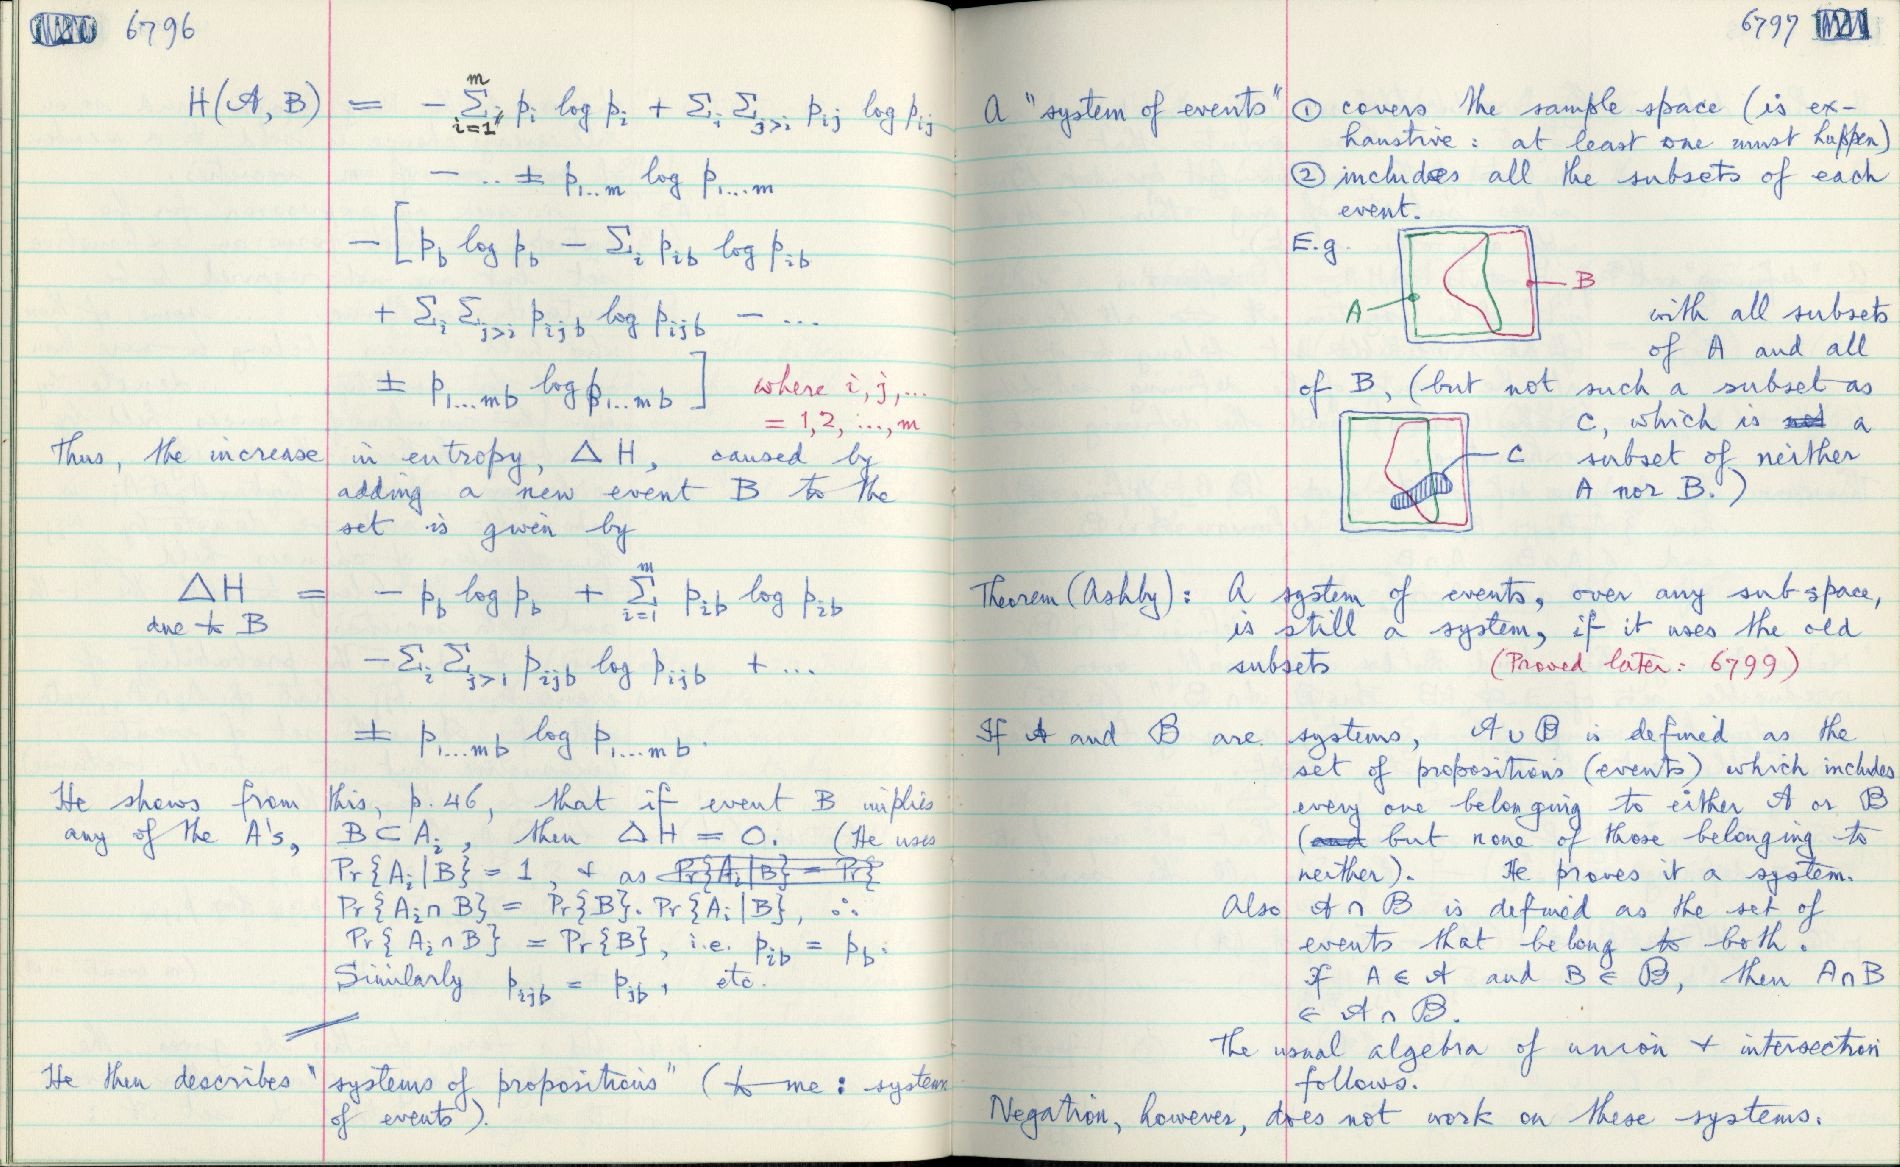 6796
H(𝒜, B) = - Σᵢ₌₁ᵐ pᵢ log pᵢ + Σᵢ Σⱼ>ᵢ pᵢⱼ log pᵢⱼ
- .. ± p₁...m log p₁....m
- [ p_b log p_b - Σᵢ p_ib log p_ib
+ Σᵢ Σⱼ>ᵢ p_ijb log p_ijb - ...
± p₁...mb log p₁...mb ] where i, j, ...
= 1, 2, ..., m
Thus, the increase in entropy, ΔH, caused by
adding a new event B to the
set is given by
ΔH = - p_b log p_b + Σᵢ₌₁ᵐ p_ib log p_ib
due to B
- Σᵢ Σⱼ>ᵢ p_ijb log p_ijb + ...
± p₁...mb log p₁....mb.
He shows from this, p. 46, that if event B implies
any of the A's, B ⊂ Aᵢ, then ΔH = 0. (He uses
Pr{Aᵢ|B} = 1, & as Pr{Aᵢ|B} = Pr{
Pr{Aᵢ ∩ B} = Pr{B}. Pr{Aᵢ|B}, ∴
Pr{Aᵢ ∩ B} = Pr{B}, i.e. p_ib = p_b.
Similarly p_ijb = p_jb, etc.
He then describes "systems of propositions" (to me: systems
of events).
6797 121
A "system of events" ① covers the sample space (is ex-
haustive: at least one must happen)
② includes all the subsets of each
event.
E.g.
A
B
with all subsets
of A and all
of B, (but not such a subset as
C, which is not a
C
subset of neither
A nor B.)
Theorem (Ashby): A system of events, over any sub-space,
is still a system, if it uses the old
subsets (Proved later: 6799)
If 𝒜 and ℬ are systems, 𝒜 ∪ ℬ is defined as the
set of propositions (events) which includes
every one belonging to either 𝒜 or ℬ
(and but none of those belonging to
neither). He proves it a system.
Also 𝒜 ∩ ℬ is defined as the set of
events that belong to both.
If A ∈ 𝒜 and B ∈ ℬ, then A ∩ B
∈ 𝒜 ∩ ℬ.
The usual algebra of union & intersection
follows.
Negation, however, does not work on these systems.